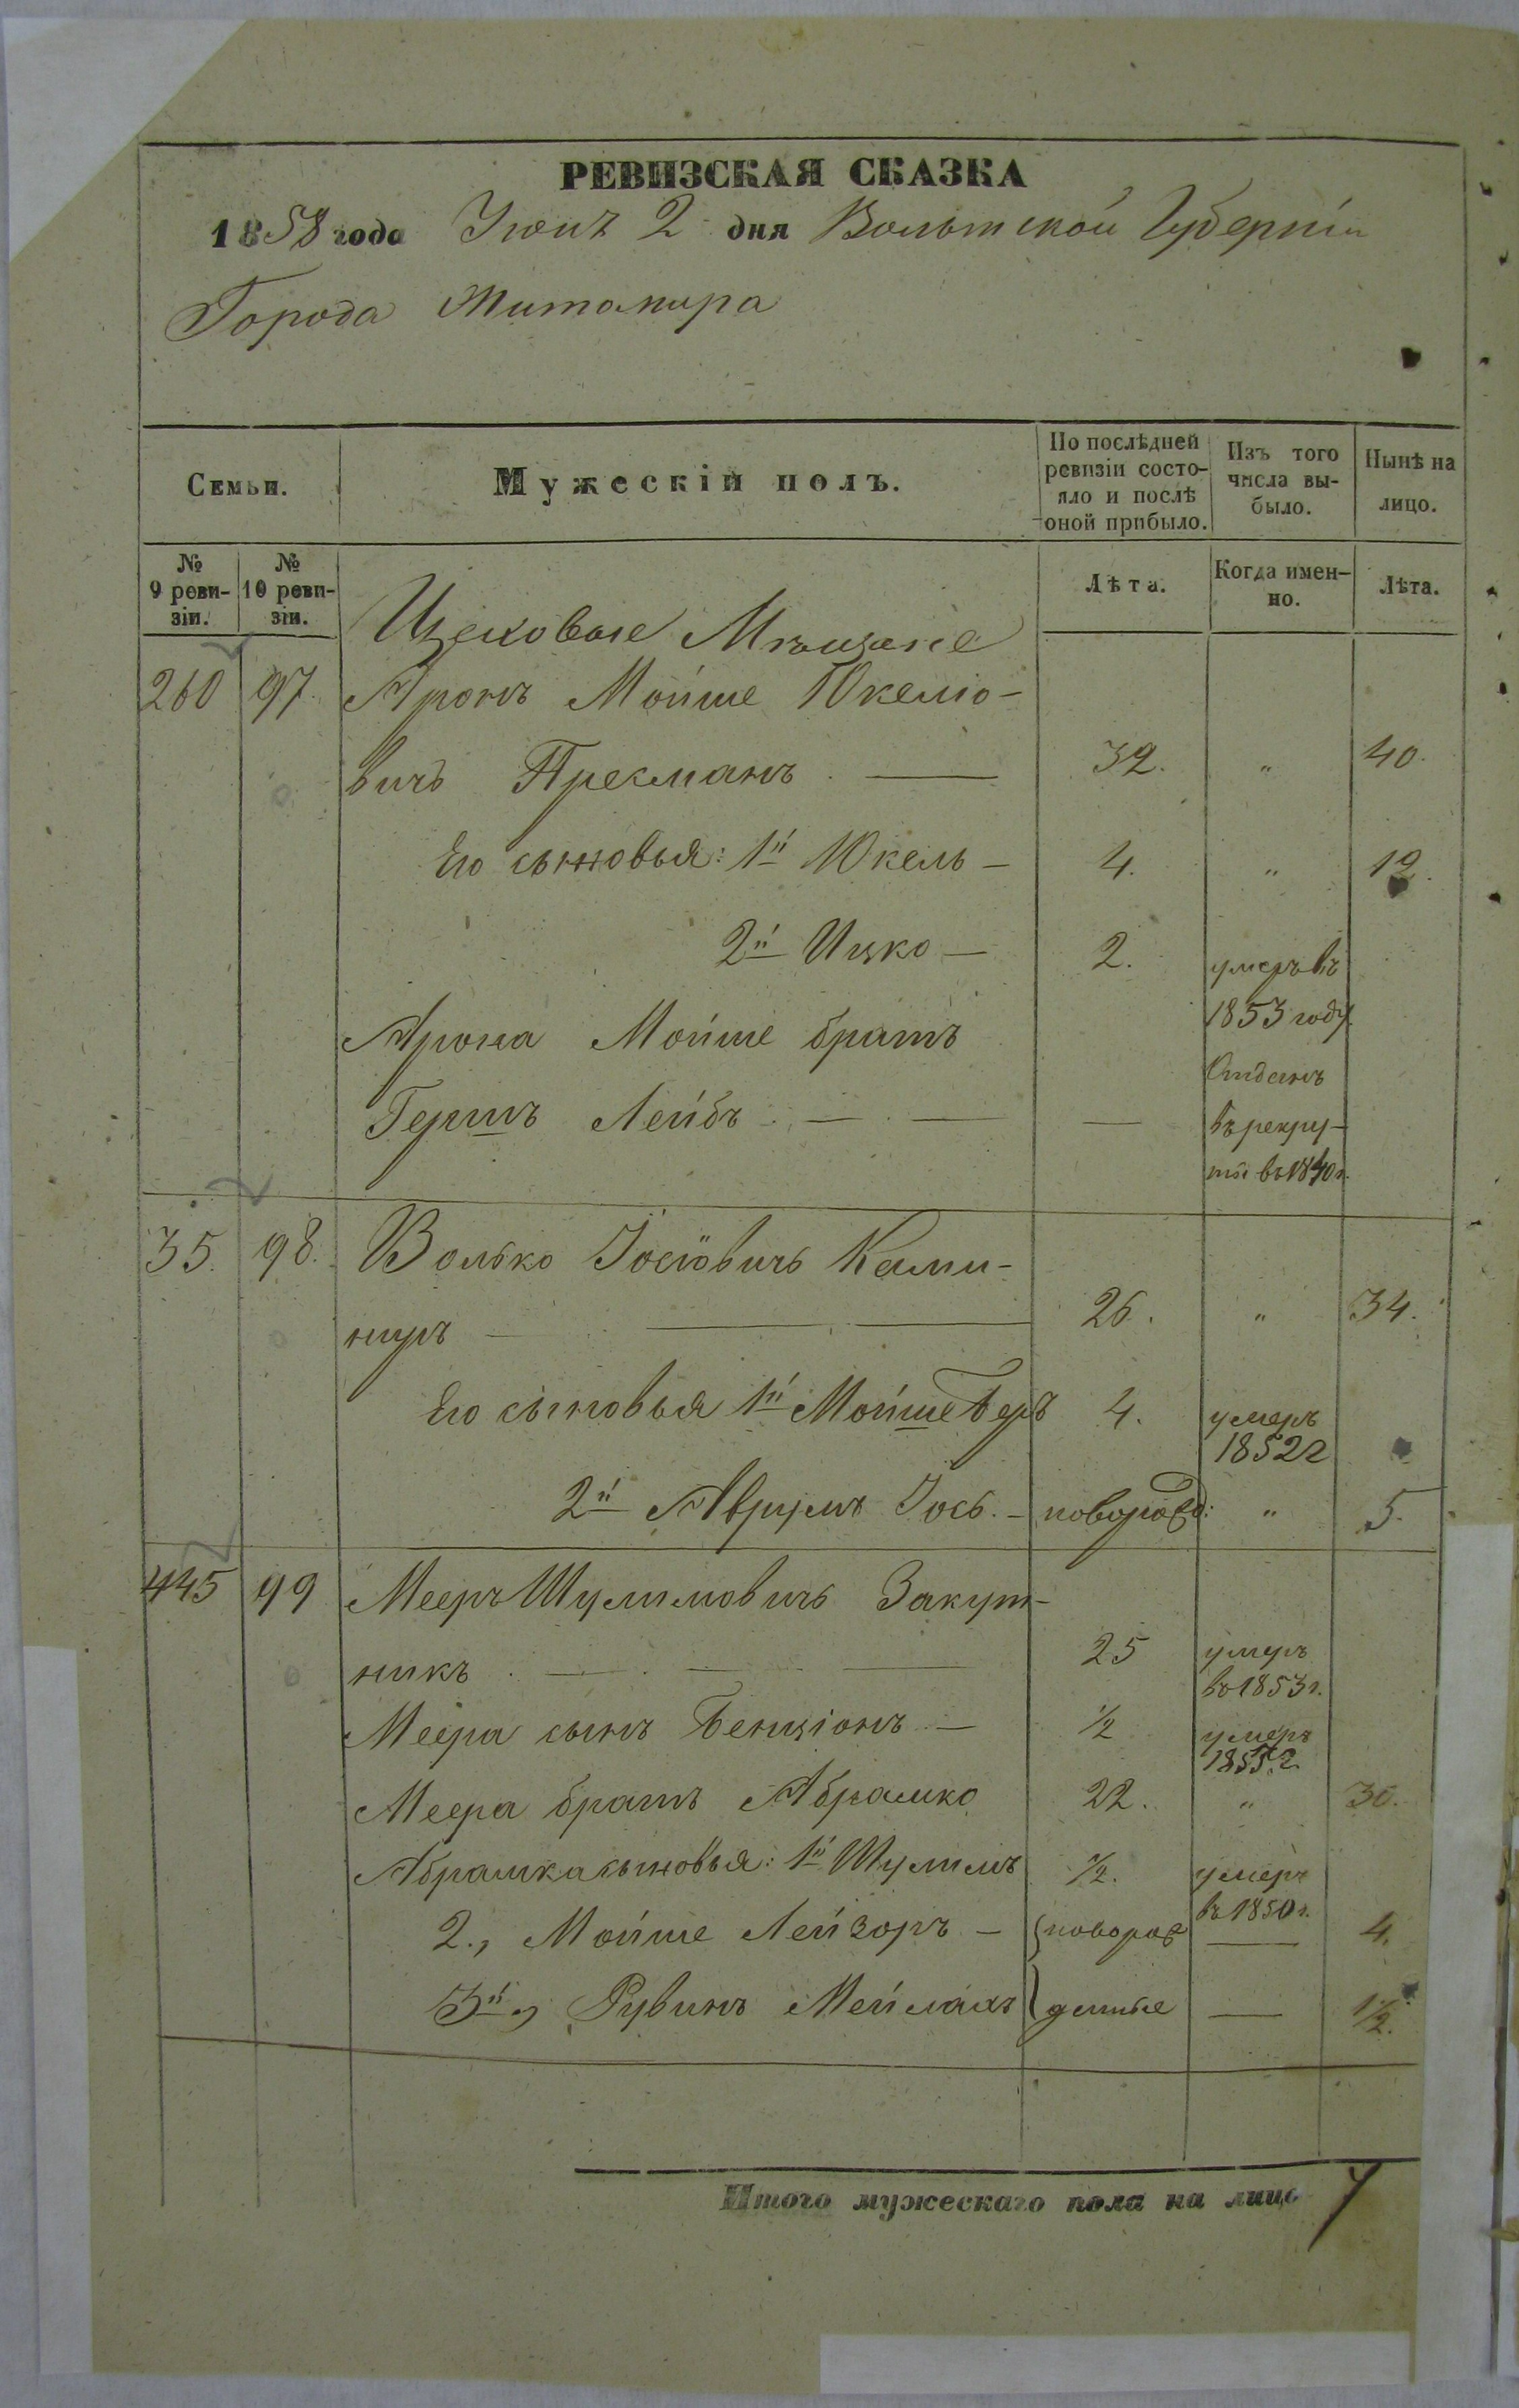 РЕВИЗСКАЯ СКАЗКА
1858 года Июня 2 дня Волынской Губерніи
Города Житомира
Семьи.
Мужескій полъ.
По послѣдней ревизіи состояло и послѣ оной прибыло.
Изъ того числа выбыло.
Нынѣ на лицо.
№ 9 ревизіи.
№ 10 ревизіи.
Лѣта.
Когда именно.
Лѣта.
Цеховые Мѣщане
260 97. Аронъ Мойше Юкеліо-
вичъ Пресманъ — 32. " 40.
Его сыновья: 1й Юкель — 4. " 12.
2й Ицко — 2. умеръ въ
1853 году
Арона Мойше братъ
Отданъ
Гершъ Лейбъ — — — въ рекру-
ты въ 1840 г.
35. 98. Волько Іосіовичъ Ками-
ниръ — — — 26. " 34.
Его сыновья 1й Мойше Беръ 4. умеръ
1852 г
2й Аврумъ Іось. — новорожд: " 5.
445 99 Мееръ Шулимовичъ Закут-
никъ — — — 25 умеръ
въ 1853 г.
Меера сынъ Бенціонъ — 1/2 умеръ
Меера братъ Абрамко 22. " 30.
Абрамка сыновья: 1й Шулимъ 1/2. умеръ
въ 1850 г.
2., Мойше Лейзоръ — новорож — 4.
3й, Рувинъ Мейлахъ денные — 1 1/2.
Итого мужескаго пола на лицо 7